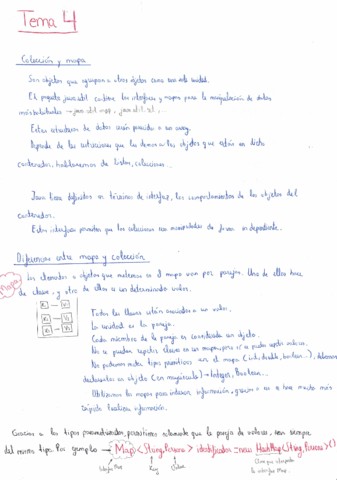 Tema 4
Colección y mapa
Son objetos que agrupan a otros objetos como una sola unidad.
El paquete java.util contiene las interfaces y mapas para la manipulación de datos
java.util.map, java.util.set, ...
Estas estructuras de datos serán parecidas a un array.
Depende de las restricciones que les demos a los objetos que estén en dicho
contenedor, hablaremos de listas, colecciones...
Java tiene definidos en términos de interfaz, los comportamientos de los objetos del
contenedor.
Estas interfaces permiten que las colecciones sean manipuladas de forma independiente.
Diferencias entre mapa y colección
Mapa
Los elementos u objetos que metemos en el mapa van por parejas. Uno de ellos hace
de clave, y otro de ellos a un determinado valor.
K1 — V1
K2 — V2
K3 — V3
Todas las claves están asociadas a un valor.
La unidad es la pareja.
Cada miembro de la pareja es considerado un objeto.
No se pueden repetir claves en un mapa, pero sí se pueden repetir valores.
No podemos meter tipos primitivos en el mapa (int, double, boolean...), debemos
declararlos en objeto (en mayúscula) → Integer, Boolean...
Utilizamos los mapas para intercambiar información, gracias a que se hace mucho más
rápido localizar información.
Gracias a los tipos parametrizados, permitimos que la pareja de valores, sean siempre
del mismo tipo. Por ejemplo → Map<String, Persona> identificados = new HashMap<String, Persona>()
Interfaz Map
Key
Value
Clase que implementa
la interfaz Map.